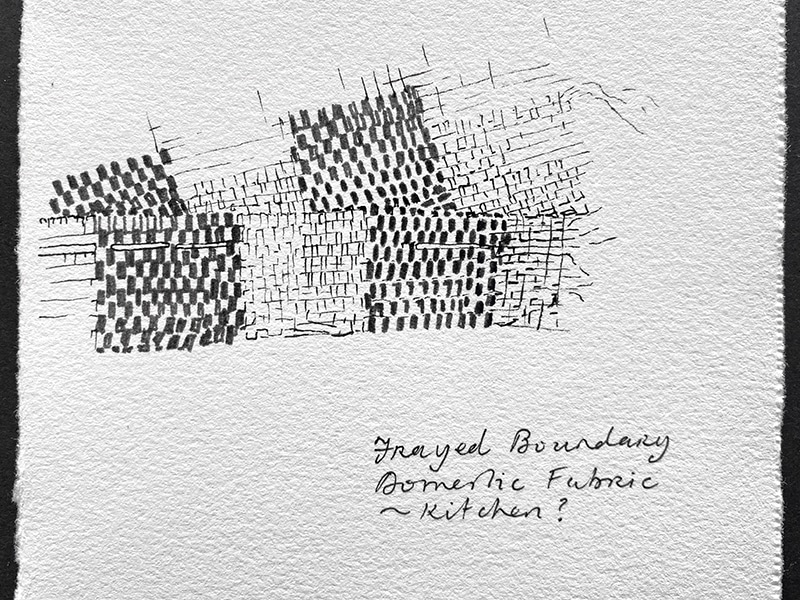 Frayed Boundary
Domestic Fabric
~ Kitchen?